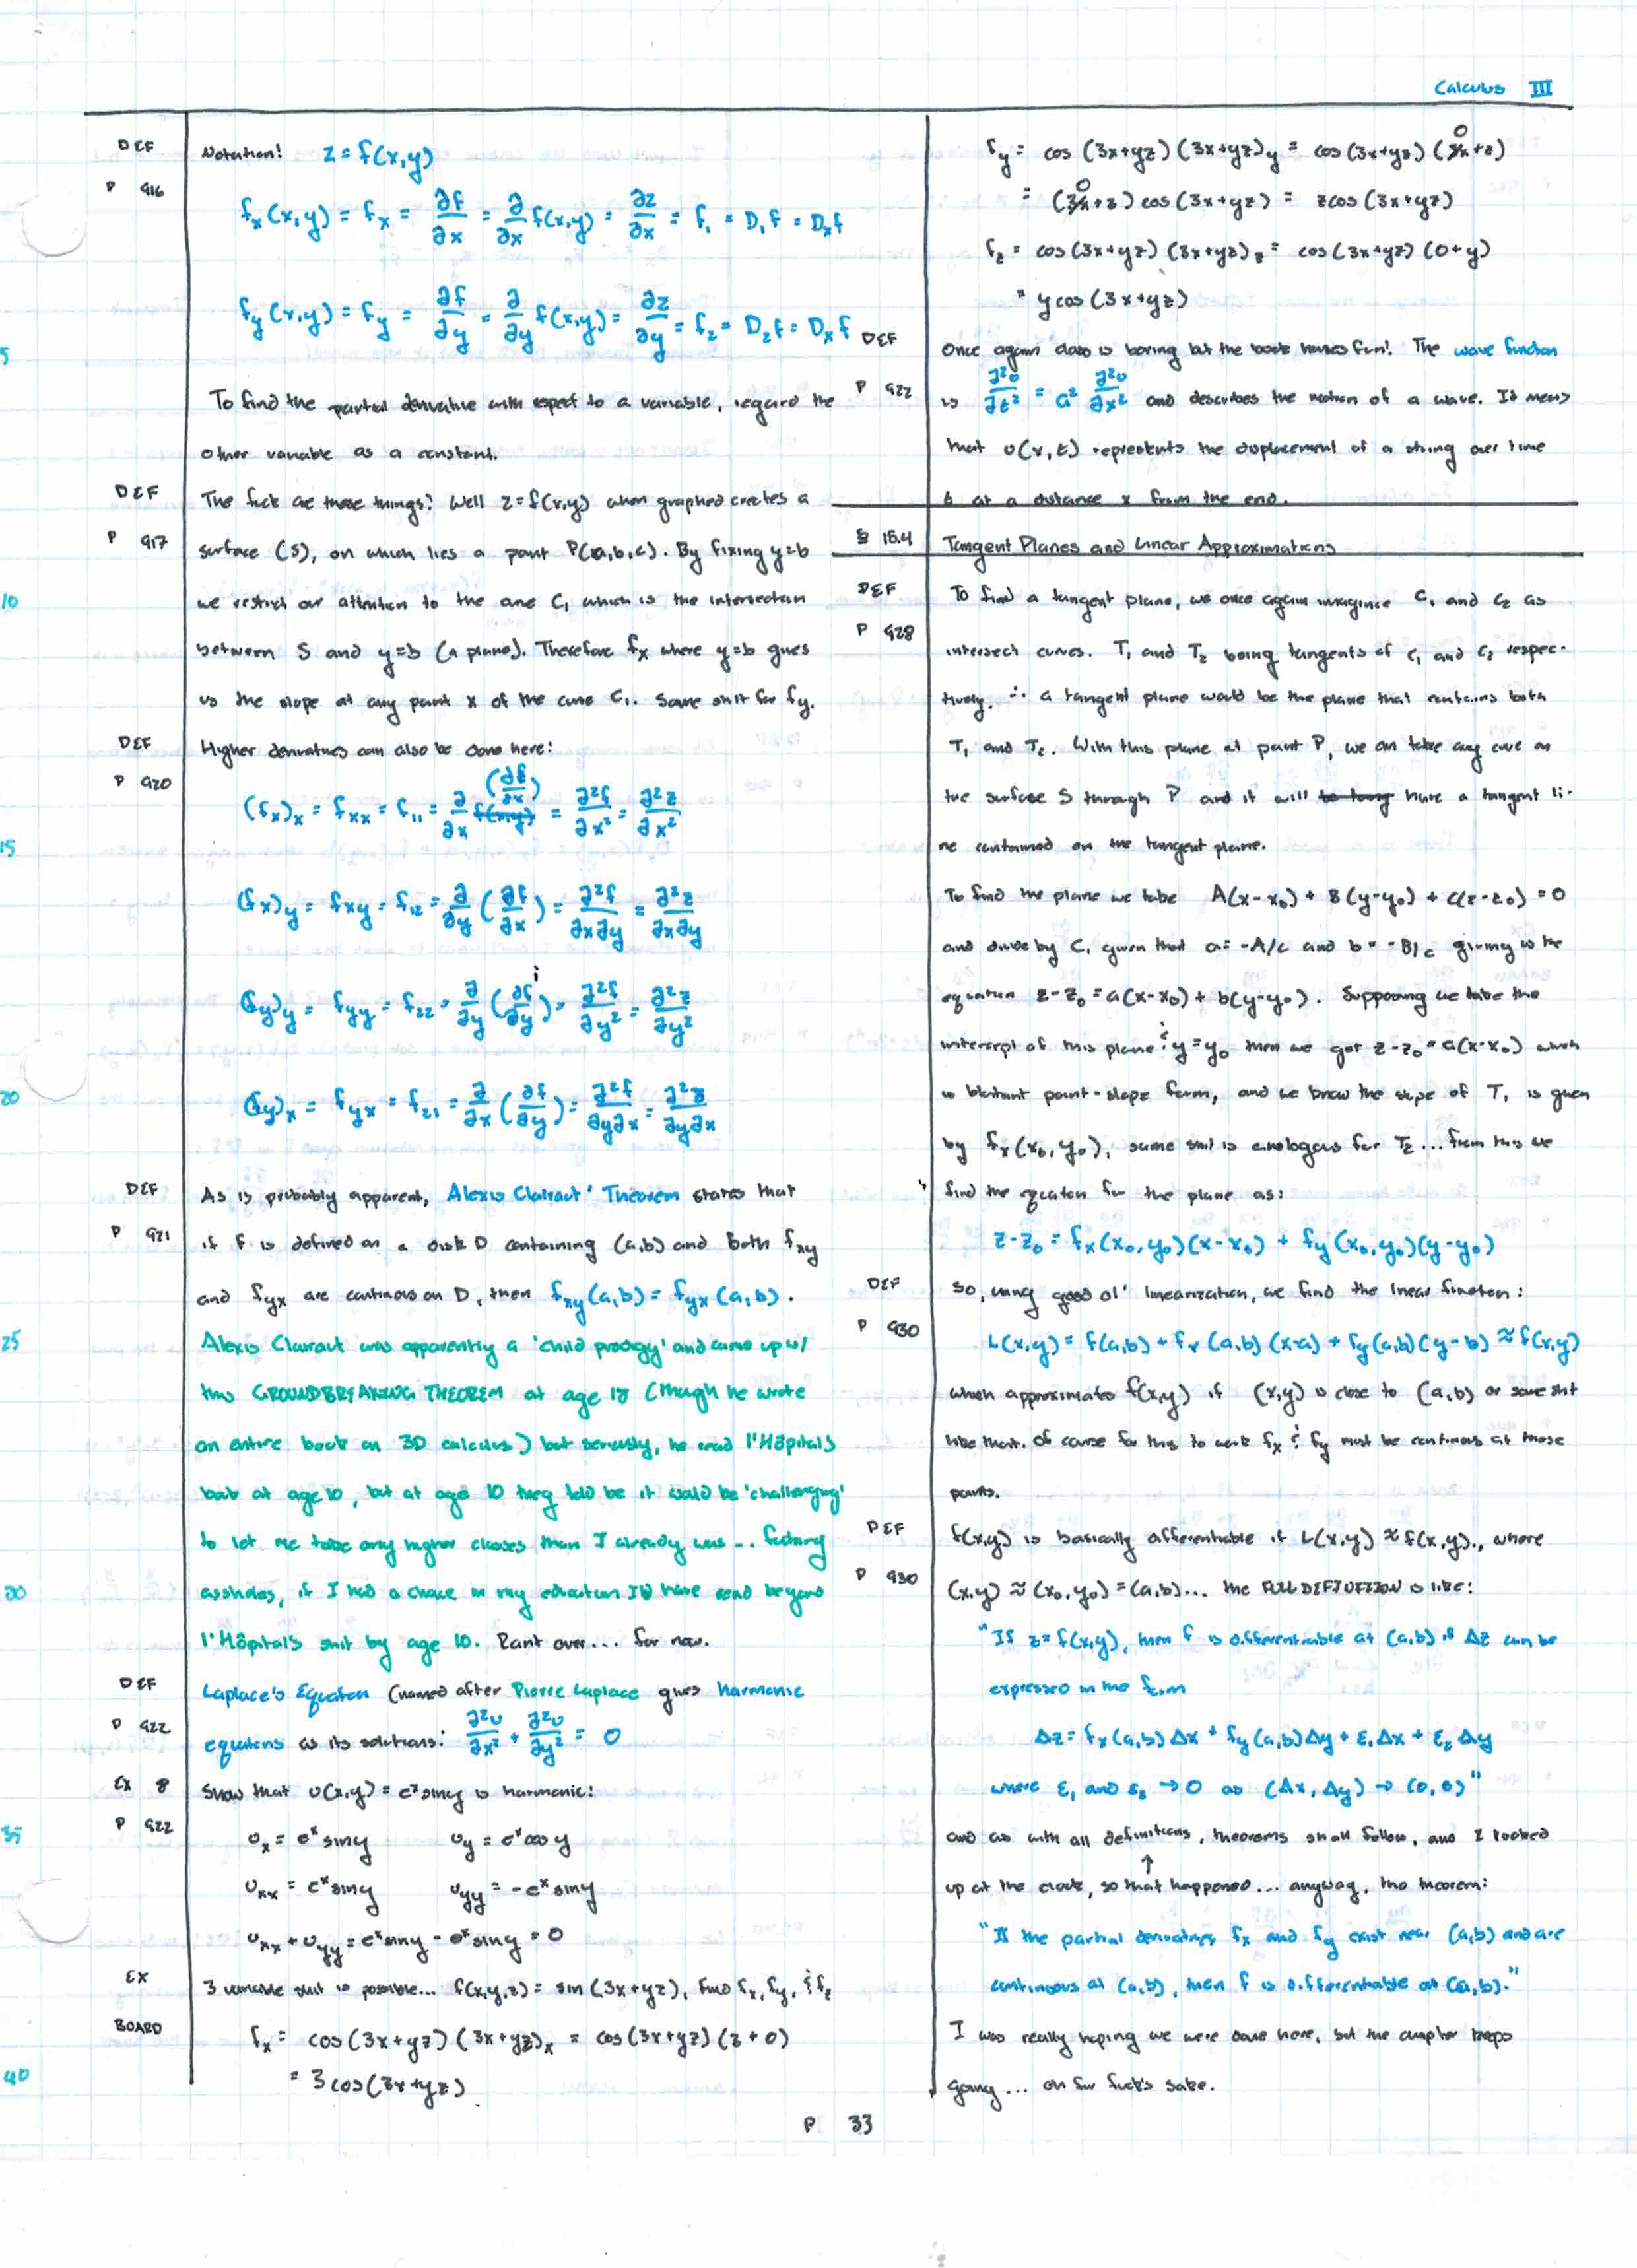 Calculus III
DEF
Notation! z = f(x,y)
P 916
fx(x,y) = fx = ∂f/∂x = ∂/∂x f(x,y) = ∂z/∂x = f₁ = D₁f = Dxf
fy(x,y) = fy = ∂f/∂y = ∂/∂y f(x,y) = ∂z/∂y = f₂ = D₂f = Dxf
5
To find the partial derivative with respect to a variable, regard the
other variable as a constant.
DEF
The fuck are these things? Well z=f(x,y) when graphed creates a
P 917
surface (S), on which lies a point P(a,b,c). By fixing y=b
10
we restrict our attention to the curve C₁ which is the intersection
between S and y=b (a plane). Therefore fx where y=b gives
us the slope at any point x of the curve C₁. Same shit for fy.
DEF
Higher derivatives can also be done here:
P 920
(fx)x = fxx = f₁₁ = ∂/∂x (∂f/∂x) = ∂²f/∂x² = ∂²z/∂x²
15
(fx)y = fxy = f₁₂ = ∂/∂y (∂f/∂x) = ∂²f/∂x∂y = ∂²z/∂x∂y
(fy)y = fyy = f₂₂ = ∂/∂y (∂f/∂y) = ∂²f/∂y² = ∂²z/∂y²
20
(fy)x = fyx = f₂₁ = ∂/∂x (∂f/∂y) = ∂²f/∂y∂x = ∂²z/∂y∂x
DEF
As is probably apparent, Alexis Clairaut' Theorem states that
P 921
if F is defined on a disk D containing (a,b) and both fxy
and fyx are continous on D, then fxy(a,b) = fyx(a,b).
25
Alexis Clairaut was apparently a 'child prodigy' and came up w/
this GROUNDBREAKING THEOREM at age 18 (though he wrote
an entire book on 3D calculus) but seriously, he read l'Hôpital's
book at age 10, but at age 10 they told be it would be 'challenging'
to let me take any higher classes than I already was... fucking
30
assholes, if I had a choice in my education I'd have read beyond
l'Hôpital's shit by age 10. Rant over... for now.
DEF
Laplace's Equation (named after Pierre Laplace gives harmonic
P 922
equations as its solutions: ∂²u/∂x² + ∂²u/∂y² = 0
EX 8
Show that u(x,y) = eˣsiny is harmonic:
P 922
35
ux = eˣ siny uy = eˣ cos y
uxx = eˣ siny uyy = -eˣ siny
uxx + uyy = eˣ siny - eˣ siny = 0
EX
3 variable shit is possible... f(x,y,z) = sin(3x+yz), find fx, fy, & fz
BOARD
fx = cos(3x+yz)(3x+yz)x = cos(3x+yz)(3+0)
40
= 3cos(3x+yz)
fy = cos(3x+yz)(3x+yz)y = cos(3x+yz)(3x+z) 0
= (3x+z)cos(3x+yz) = zcos(3x+yz) 0
fz = cos(3x+yz)(3x+yz)z = cos(3x+yz)(0+y)
= y cos(3x+yz)
DEF
Once again class is boring but the book makes fun! The wave function
P 922
is ∂²u/∂t² = a² ∂²u/∂x² and describes the motion of a wave. It means
that u(x,t) represents the displacement of a string over time
t at a distance x from the end.
§ 15.4 Tangent Planes and Linear Approximations
DEF
To find a tangent plane, we once again imagince C₁ and C₂ as
P 928
intersect curves. T₁ and T₂ being tangents of C₁ and C₂ respec-
tively. ∴ a tangent plane would be the plane that contains both
T₁ and T₂. With this plane at point P, we can take any curve on
the surface S through P and it will have a tangent li-
ne contained on the tangent plane.
To find the plane we take A(x-x₀) + B(y-y₀) + C(z-z₀) = 0
and divide by C, given that a = -A/C and b = -B/C giving us the
equation z-z₀ = a(x-x₀) + b(y-y₀). Supposing we take the
intercept of this plane & y=y₀ then we get z-z₀ = a(x-x₀) which
is blatant point-slope form, and we know the slope of T₁ is given
by fx(x₀,y₀), same shit is analogous for T₂... from this we
find the equation for the plane as:
z-z₀ = fx(x₀,y₀)(x-x₀) + fy(x₀,y₀)(y-y₀)
DEF
So, using good ol' linearization, we find the linear function:
P 930
L(x,y) = f(a,b) + fx(a,b)(x-a) + fy(a,b)(y-b) ≈ f(x,y)
which approximates f(x,y) if (x,y) is close to (a,b) or some shit
like that. Of course for this to work fx & fy must be continous at those
points.
DEF
f(x,y) is basically differentiable if L(x,y) ≈ f(x,y)., where
P 930
(x,y) ≈ (x₀,y₀) = (a,b)... the FULL DEFINITION is like:
"If z = f(x,y), then f is differentiable at (a,b) if Δz can be
expressed in the form
Δz = fx(a,b)Δx + fy(a,b)Δy + ε₁Δx + ε₂Δy
where ε₁ and ε₂ → 0 as (Δx, Δy) → (0,0)"
and as with all definitions, theorems shall follow, and I looked
↑
up at the clock, so that happened... anyway, the theorem:
"If the partial derivatives fx and fy exist near (a,b) and are
continuous at (a,b), then f is differentiable at (a,b)."
I was really hoping we were done here, but the chapter keeps
going... oh for fuck's sake.
P 33